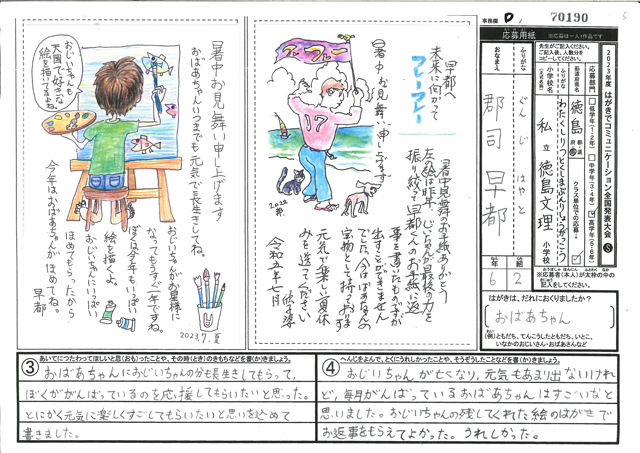 事務欄 D
70190
応募用紙
2023年度 はがきでコミュニケーション全国発表大会 S
応募部門
低学年(1・2年)
中学年(3・4年)
高学年(5・6年)
クラス単位での応募
徳島
わたくしりつとくしまぶんりしょうがっこう
私立 徳島文理 小学校
ふりがな
ぐんじ はやと
おなまえ
郡司 早都
6年
2組
はがきは、だれにおくりましたか?
おばあちゃん
(例)ともだち、てんこうしたともだち、いとこ、
いなかのおじいさん・おばあさんなど
早都へ
未来に向かって
フレーフレー
フレーフレー
暑中お見舞い申し上げます
17
2022
暑中見舞のお手紙ありがとう
左の絵は昨年、じいちゃんが最後の力を
振り絞って早都くんのお手紙に返
事を書いたものですが
出すことができません
でした。今はばあちゃんの
宝物として持っております
元気で楽しい夏休
みを送ってください
令和五年七月
おじいちゃんも
天国で好きな
絵を描いてるよね。
暑中お見舞い申し上げます。
おばあちゃんいつまでも元気で長生きしてね。
おじいちゃんがお星様に
なってもうすぐ一年ですね。
ぼくは今年もいっぱい
絵を描くよ。
おじいちゃんにいっぱい
ほめてもらったから
今年はおばあちゃんがほめてね。
早都
2023.7.夏
③ あいてにつたわってほしいと思(おも)ったことや、その時(とき)のきもちなどを書(か)きましょう。
おばあちゃんにおじいちゃんの分も長生きしてもらって、
ぼくががんばっているのを応援してもらいたいと思った。
とにかく元気に楽しくすごしてもらいたいと思いを込めて
書きました。
④ へんじをよんで、とくにうれしかったことや、そうぞうしたことなどを書(か)きましょう。
おじいちゃんが亡くなり、元気もあまり出ないけれ
ど、毎月がんばっているおばあちゃんはすごいなと
思いました。おじいちゃんの残してくれた絵のはがきで
お返事をもらえてよかった。うれしかった。